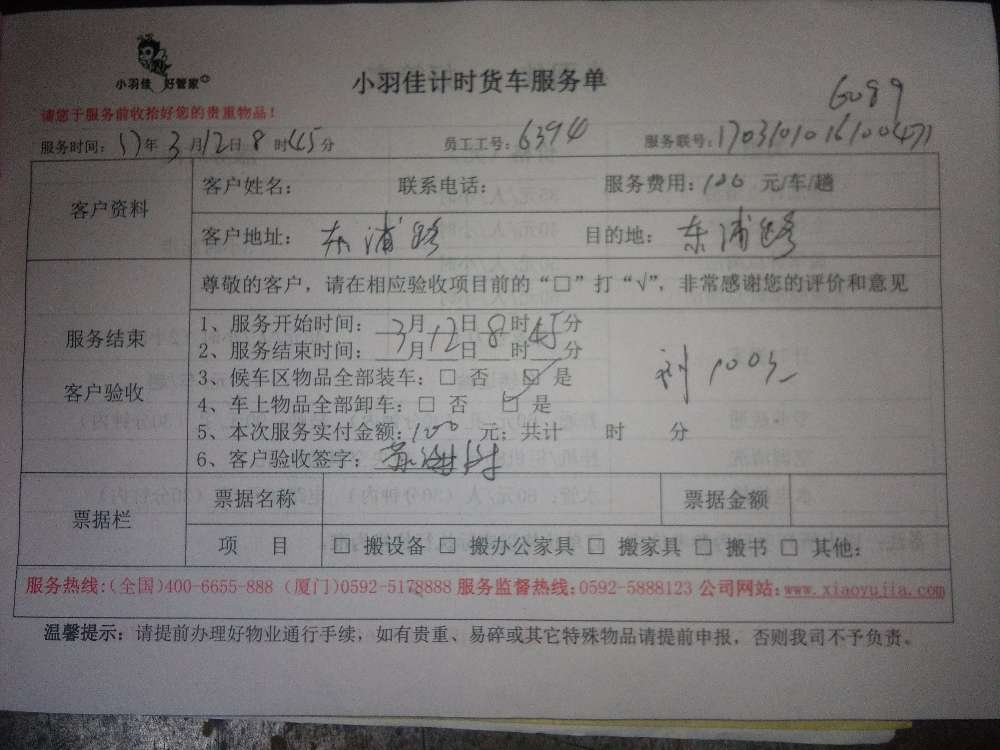 小羽佳 好管家
小羽佳计时货车服务单
6099
请您于服务前收拾好您的贵重物品！
服务时间：17年3月12日8时45分 员工工号：6394 服务联号：1703101016100471
客户资料
客户姓名： 联系电话： 服务费用：100 元/车/趟
客户地址：东浦路 目的地：东浦路
服务结束
客户验收
尊敬的客户，请在相应验收项目前的“□”打“√”，非常感谢您的评价和意见
1、服务开始时间：3月12日8时45分
2、服务结束时间：___月___日___时___分
3、候车区物品全部装车：□ 否 ☑ 是
4、车上物品全部卸车：□ 否 □ 是
5、本次服务实付金额：100 元；共计 时 分
6、客户验收签字：
票据栏
票据名称 票据金额
项 目 □ 搬设备 □ 搬办公家具 □ 搬家具 □ 搬书 □ 其他：
服务热线：(全国)400-6655-888 (厦门)0592-5178888 服务监督热线：0592-5888123 公司网站：www.xiaoyujia.com
温馨提示：请提前办理好物业通行手续，如有贵重、易碎或其它特殊物品请提前申报，否则我司不予负责。